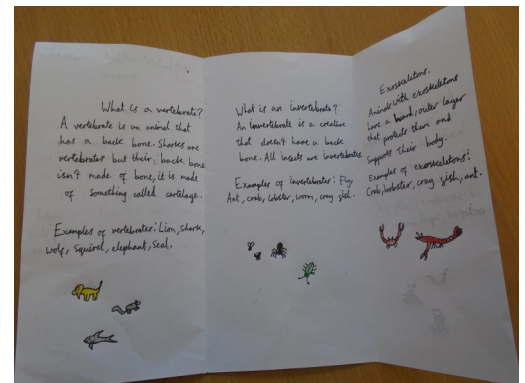 What is a vertebrate?
A vertebrate is an animal that
has a back bone. Sharks are
vertebrates but their, back bone
isn't made of bone, it is made
of something called cartilage.
Examples of vertebrates: Lion, Shark,
wolf, Squirrel, elephant, Seal.
What is an invertebrate?
An invertebrate is a creature
that doesn't have a back
bone. All insects are invertebrates
Examples of invertebrates: Fly,
Ant, crab, Lobster, worm, cray fish.
Exoskeletons.
Animals with exoskeletons
have a hard, outer layer
that protects them and
supports their body.
Examples of exoskeletons:
Crab, lobster, cray fish, ant.